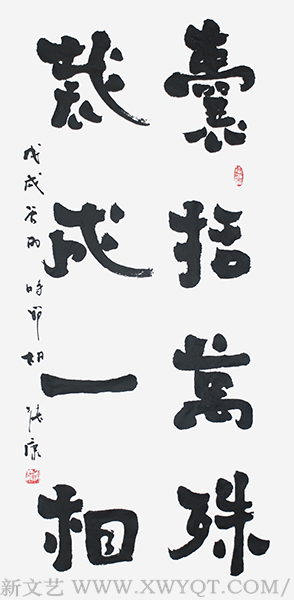 囊括萬殊
裁成一相
戊戌谷雨時節
新文艺 WWW.XWYQT.COM/